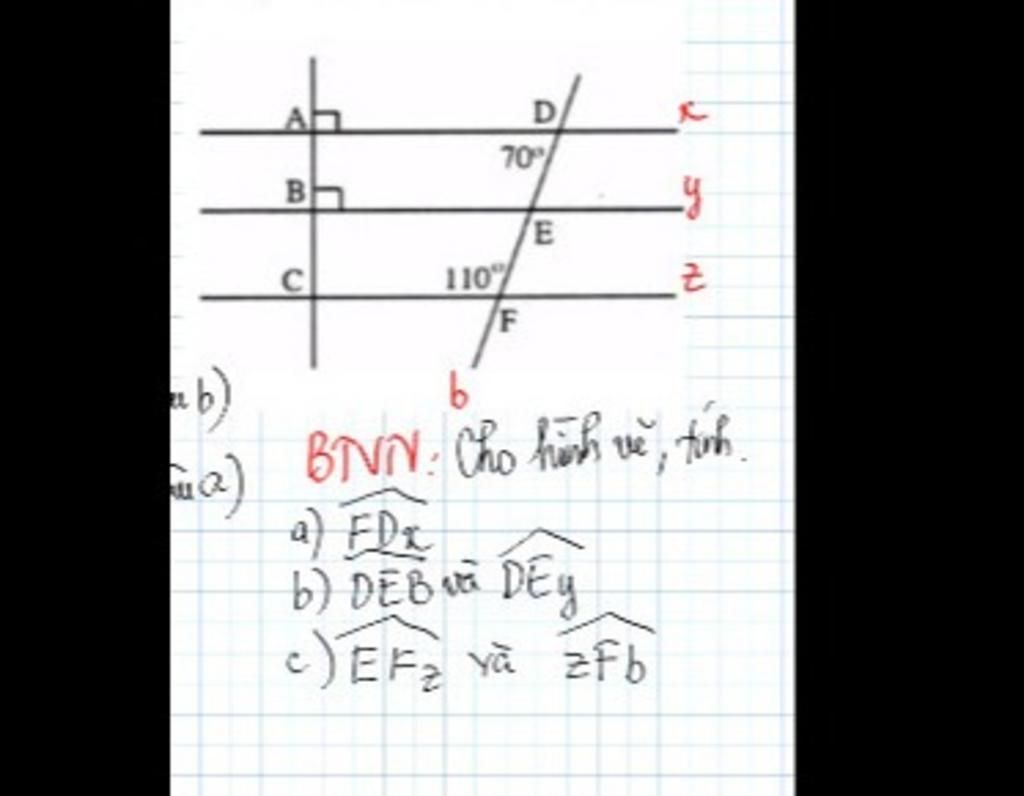 A D x
70°
B y
E
C 110° z
F
b
b)
a)
BNN: Cho hình vẽ, tính.
a) FDx
b) DEB và DEy
c) EFz và zFb